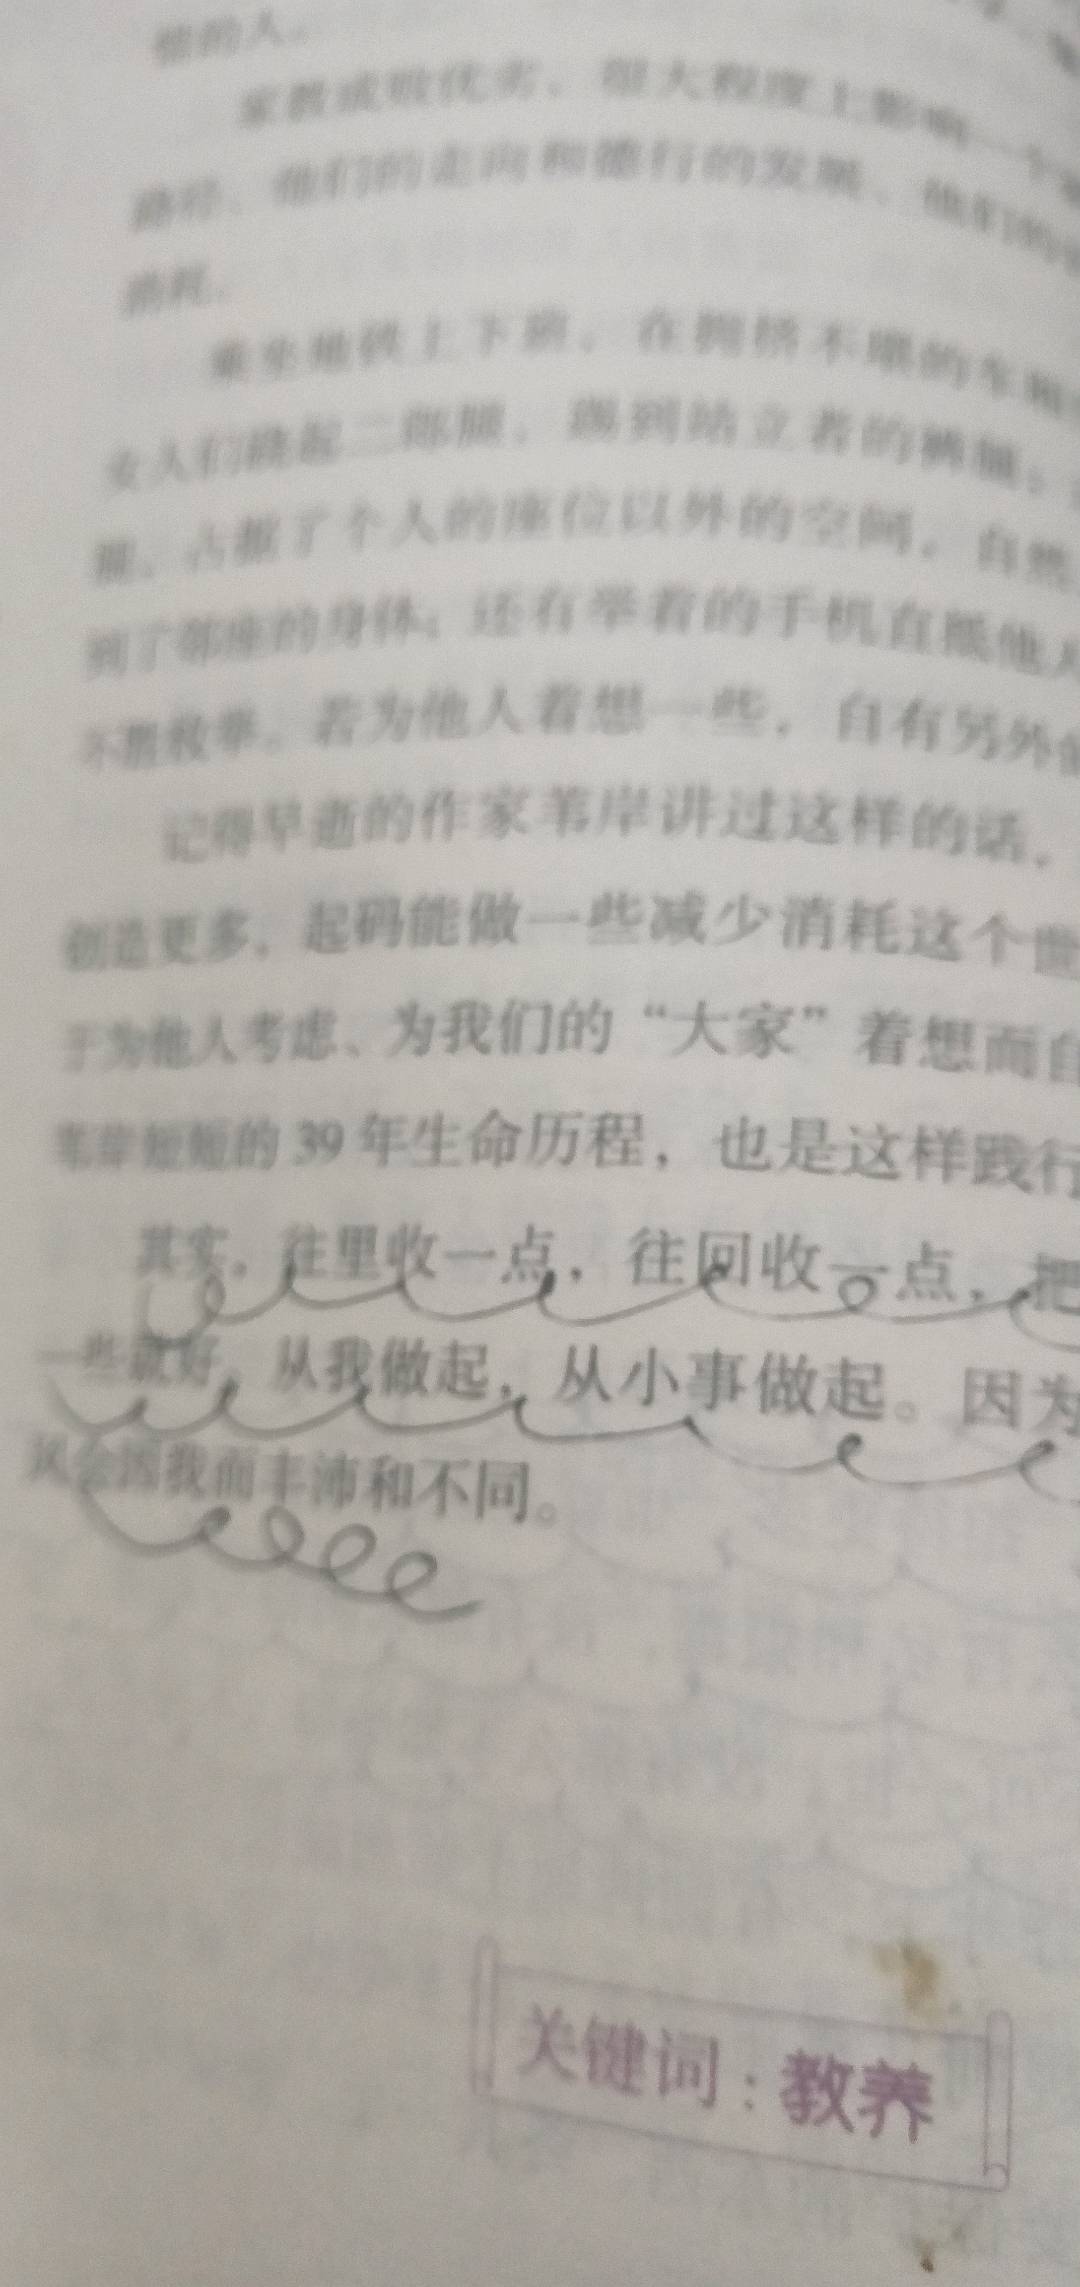 家教成败优劣，很大程度上影响一个
路径、他们的走向和德行的发展、他们的
消耗。
乘坐地铁上下班，在拥挤不堪的车厢
女人们跷起二郎腿，踢到站立者的裤腿；
腿，占据了个人的座位以外的空间，自然
到了邻座的身体；还有举着的手机直抵他人
不胜枚举。若为他人着想一些，自有另外
记得早逝的作家苇岸讲过这样的话，
创造更多，起码能做一些减少消耗这个世
于为他人考虑、为我们的“大家”着想而自
苇岸短短的39年生命历程，也是这样践行
其实，往里收一点，往回收一点，把
一些就好，从我做起，从小事做起。因为
风会因我而丰沛和不同。
关键词：教养